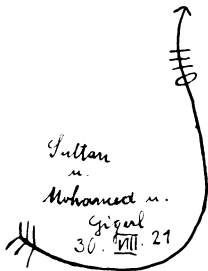 Sultan
u.
Mohamed u.
Gigerl
30. VIII. 21